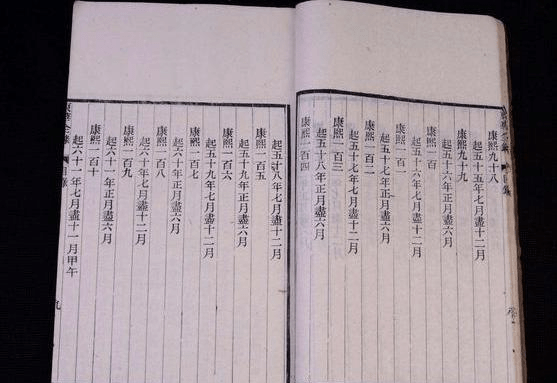 康熙九十八
起五十五年七月盡十二月
康熙九十九
起五十六年正月盡六月
康熙一百
起五十六年七月盡十二月
康熙一百一
起五十七年正月盡六月
康熙一百二
起五十七年七月盡十二月
康熙一百三
起五十八年正月盡六月
康熙一百四
起五十八年七月盡十二月
康熙一百五
起五十九年正月盡六月
康熙一百六
起五十九年七月盡十二月
康熙一百七
起六十年正月盡六月
康熙一百八
起六十年七月盡十二月
康熙一百九
起六十一年正月盡六月
康熙一百十
起六十一年七月盡十一月甲午
目錄
九